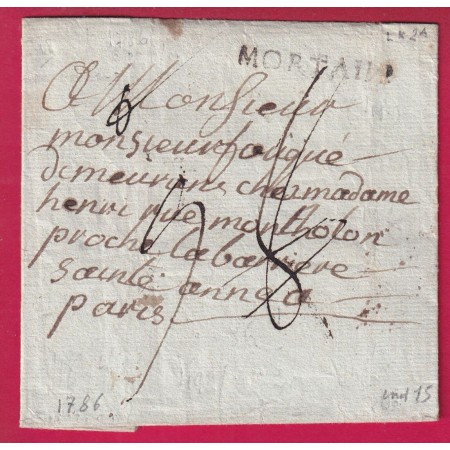 LN 24
MORTAIN
A Monsieur
monsieur fouqué
demeurant chez madame
henri rue montholon
proche la barriere
sainte anne a
paris
1786
ind 15